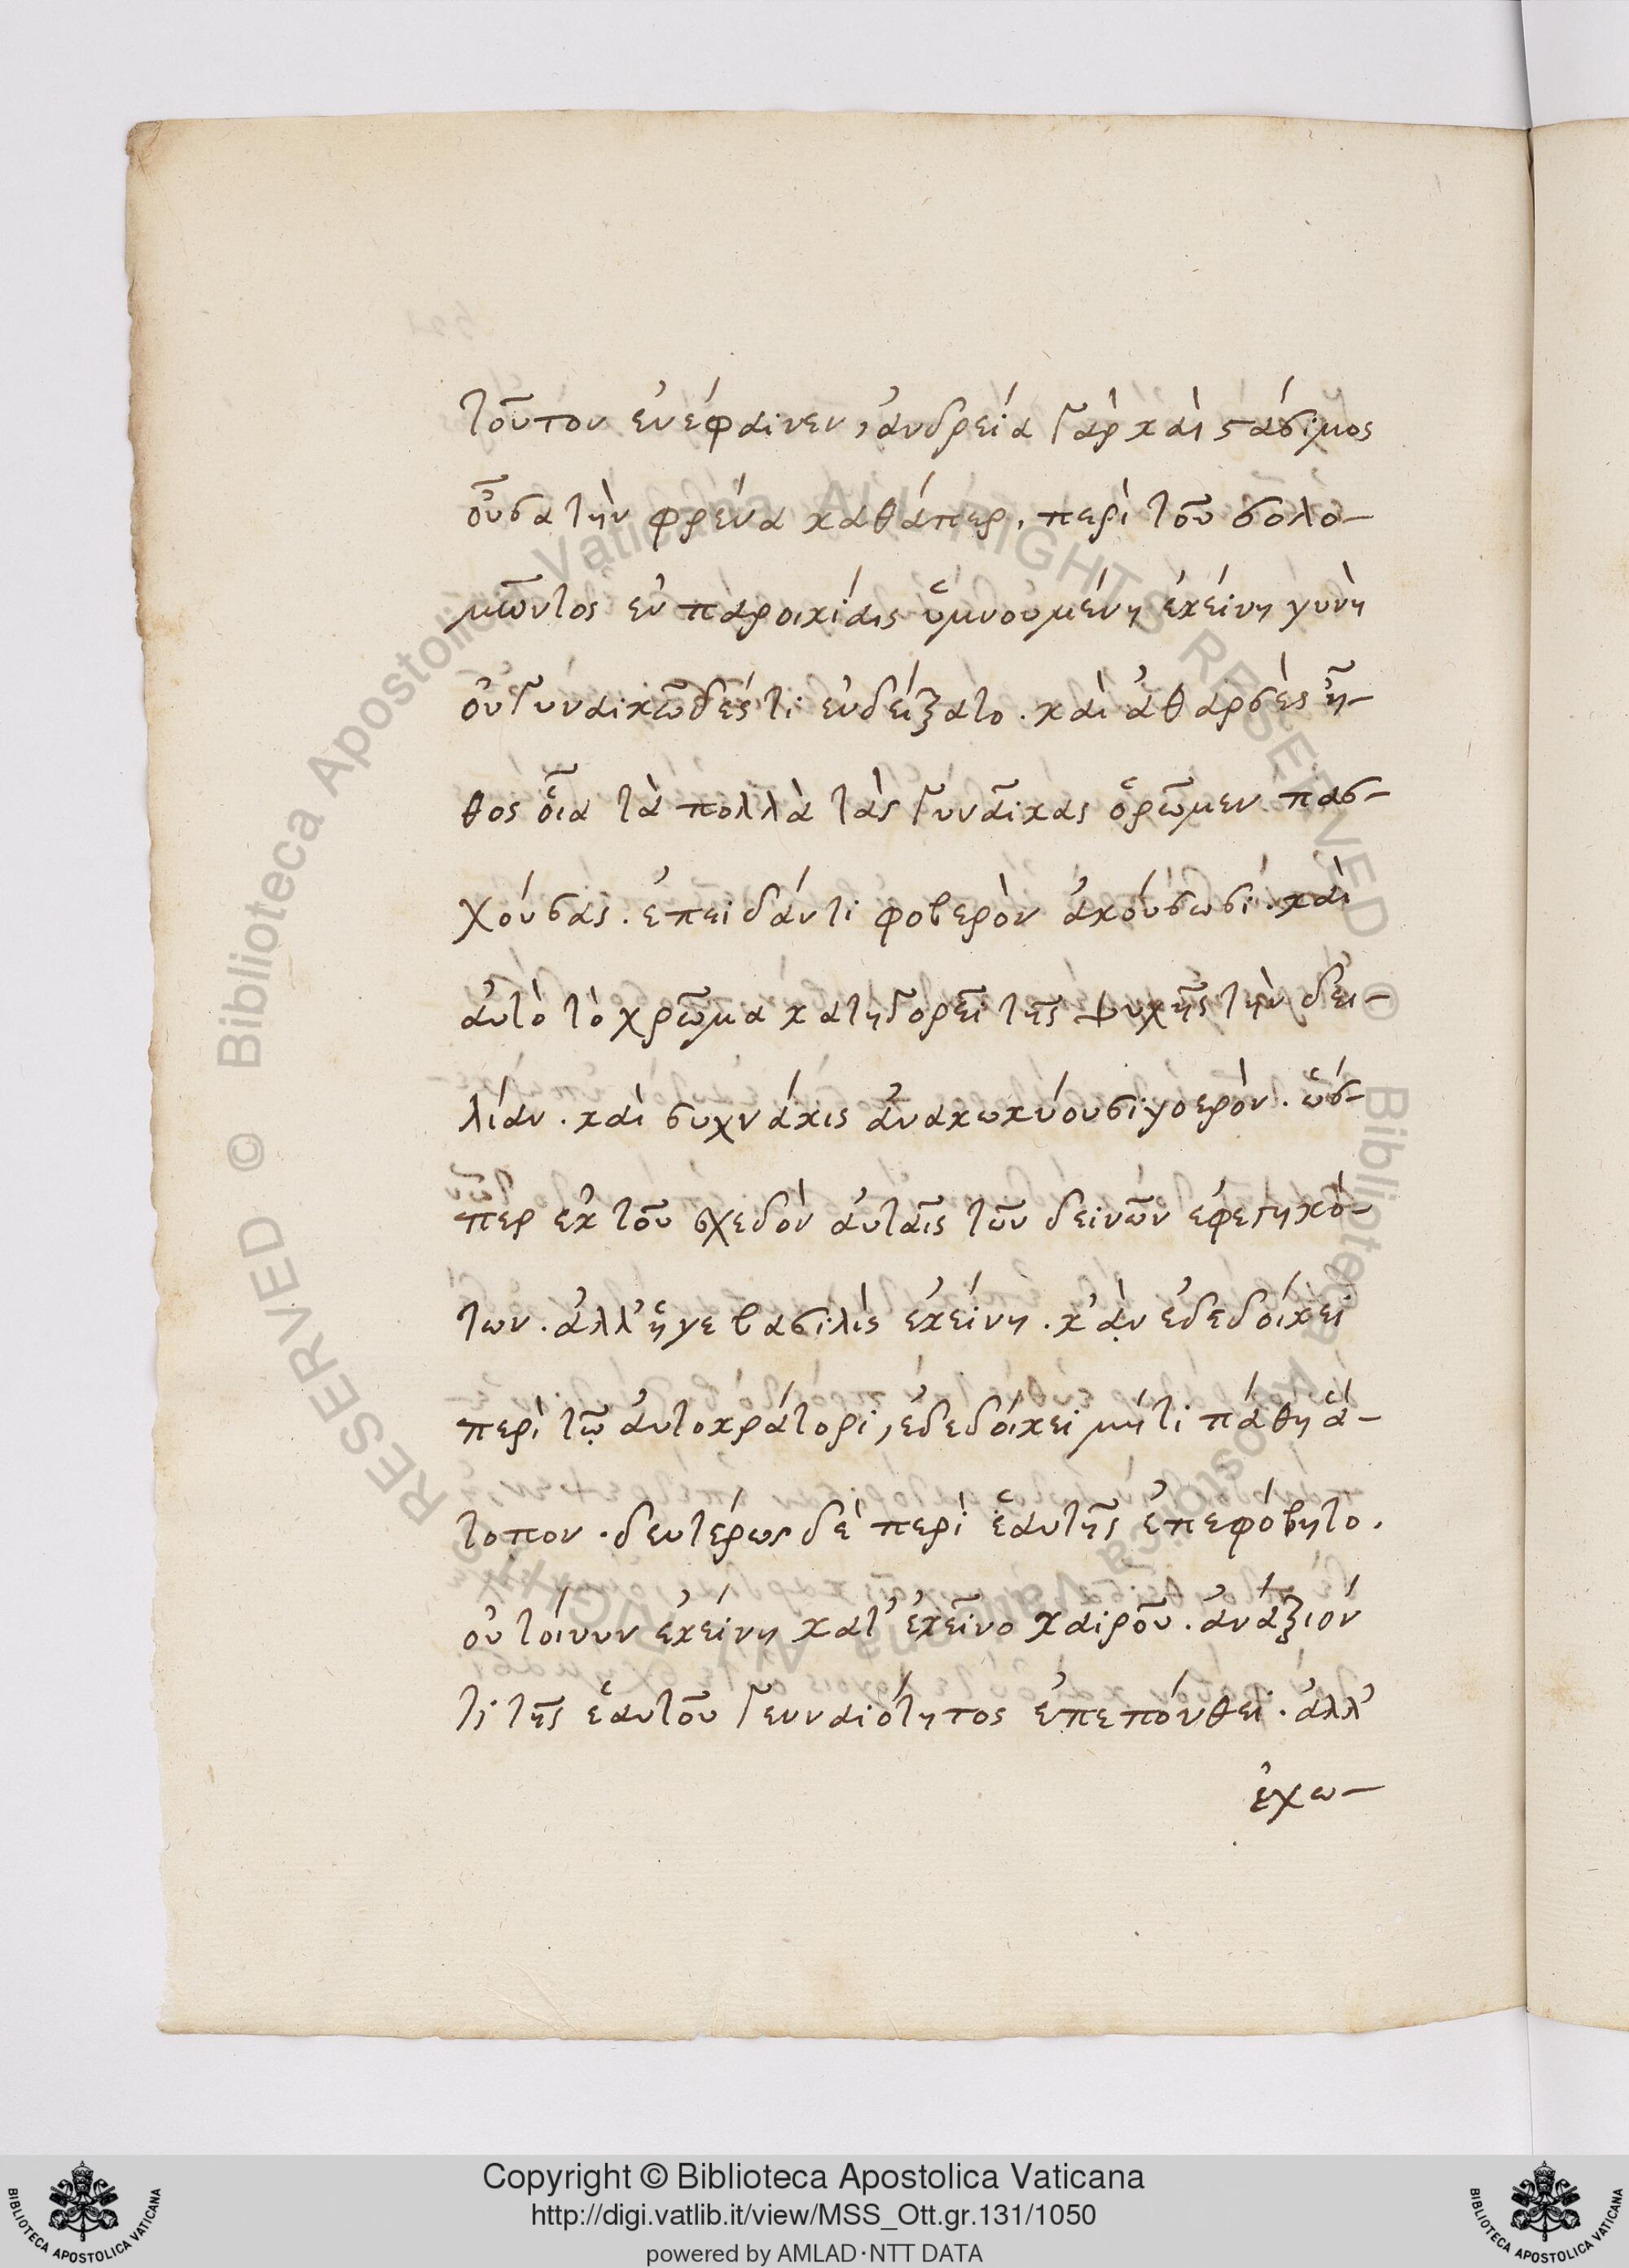 τοῦτον ἐνέφαινεν, ἀνδρεία γὰρ καὶ στάσιμος
οὖσα τὴν φρένα καθάπερ, περὶ τοῦ σολο-
μῶντος ἐν παροικίαις ὑμνουμένη ἐκείνη γυνὴ
οὐ γυναικῶδές τι ἐνδείξατο. καὶ ἀθαρσὲς ἦ-
θος οἷα τὰ πολλὰ τὰς γυναῖκας ὁρῶμεν πασ-
χούσας. ἐπειδάν τι φοβερὸν ἀκούσωσί. καὶ
ἀυτὸ τὸ χρῶμα κατηγορεῖ τῆς ψυχῆς τὴν δει-
λίαν. καὶ συχνάκις ἀνακωκύουσι γοερόν. ὥσ-
περ ἐκ τοῦ σχεδὸν ἀυταῖς τῶν δεινῶν ἐφεστηκό-
των. ἀλλ' ἥγε βασιλὶς ἐκείνη. κἂν ἐδεδοίκει
περὶ τῷ ἀυτοκράτορι, ἐδεδοίκει μήτι πάθη ἄ-
τοπον. δευτέρως δὲ περὶ ἑαυτῆς ἐπεφόβητο.
οὐ τοίνυν ἐκείνη κατ' ἐκεῖνο καιροῦ. ἀνάξιόν
τι τῆς ἑαυτοῦ γενναιότητος ἐπεπόνθει. ἀλλ'
ἐχω-
Copyright © Biblioteca Apostolica Vaticana
http://digi.vatlib.it/view/MSS_Ott.gr.131/1050
powered by AMLAD·NTT DATA
BIBLIOTECA APOSTOLICA VATICANA
BIBLIOTECA APOSTOLICA VATICANA
© Biblioteca Apostolica Vaticana ALL RIGHTS RESERVED © Biblioteca Apostolica Vaticana ALL RIGHTS RESERVED